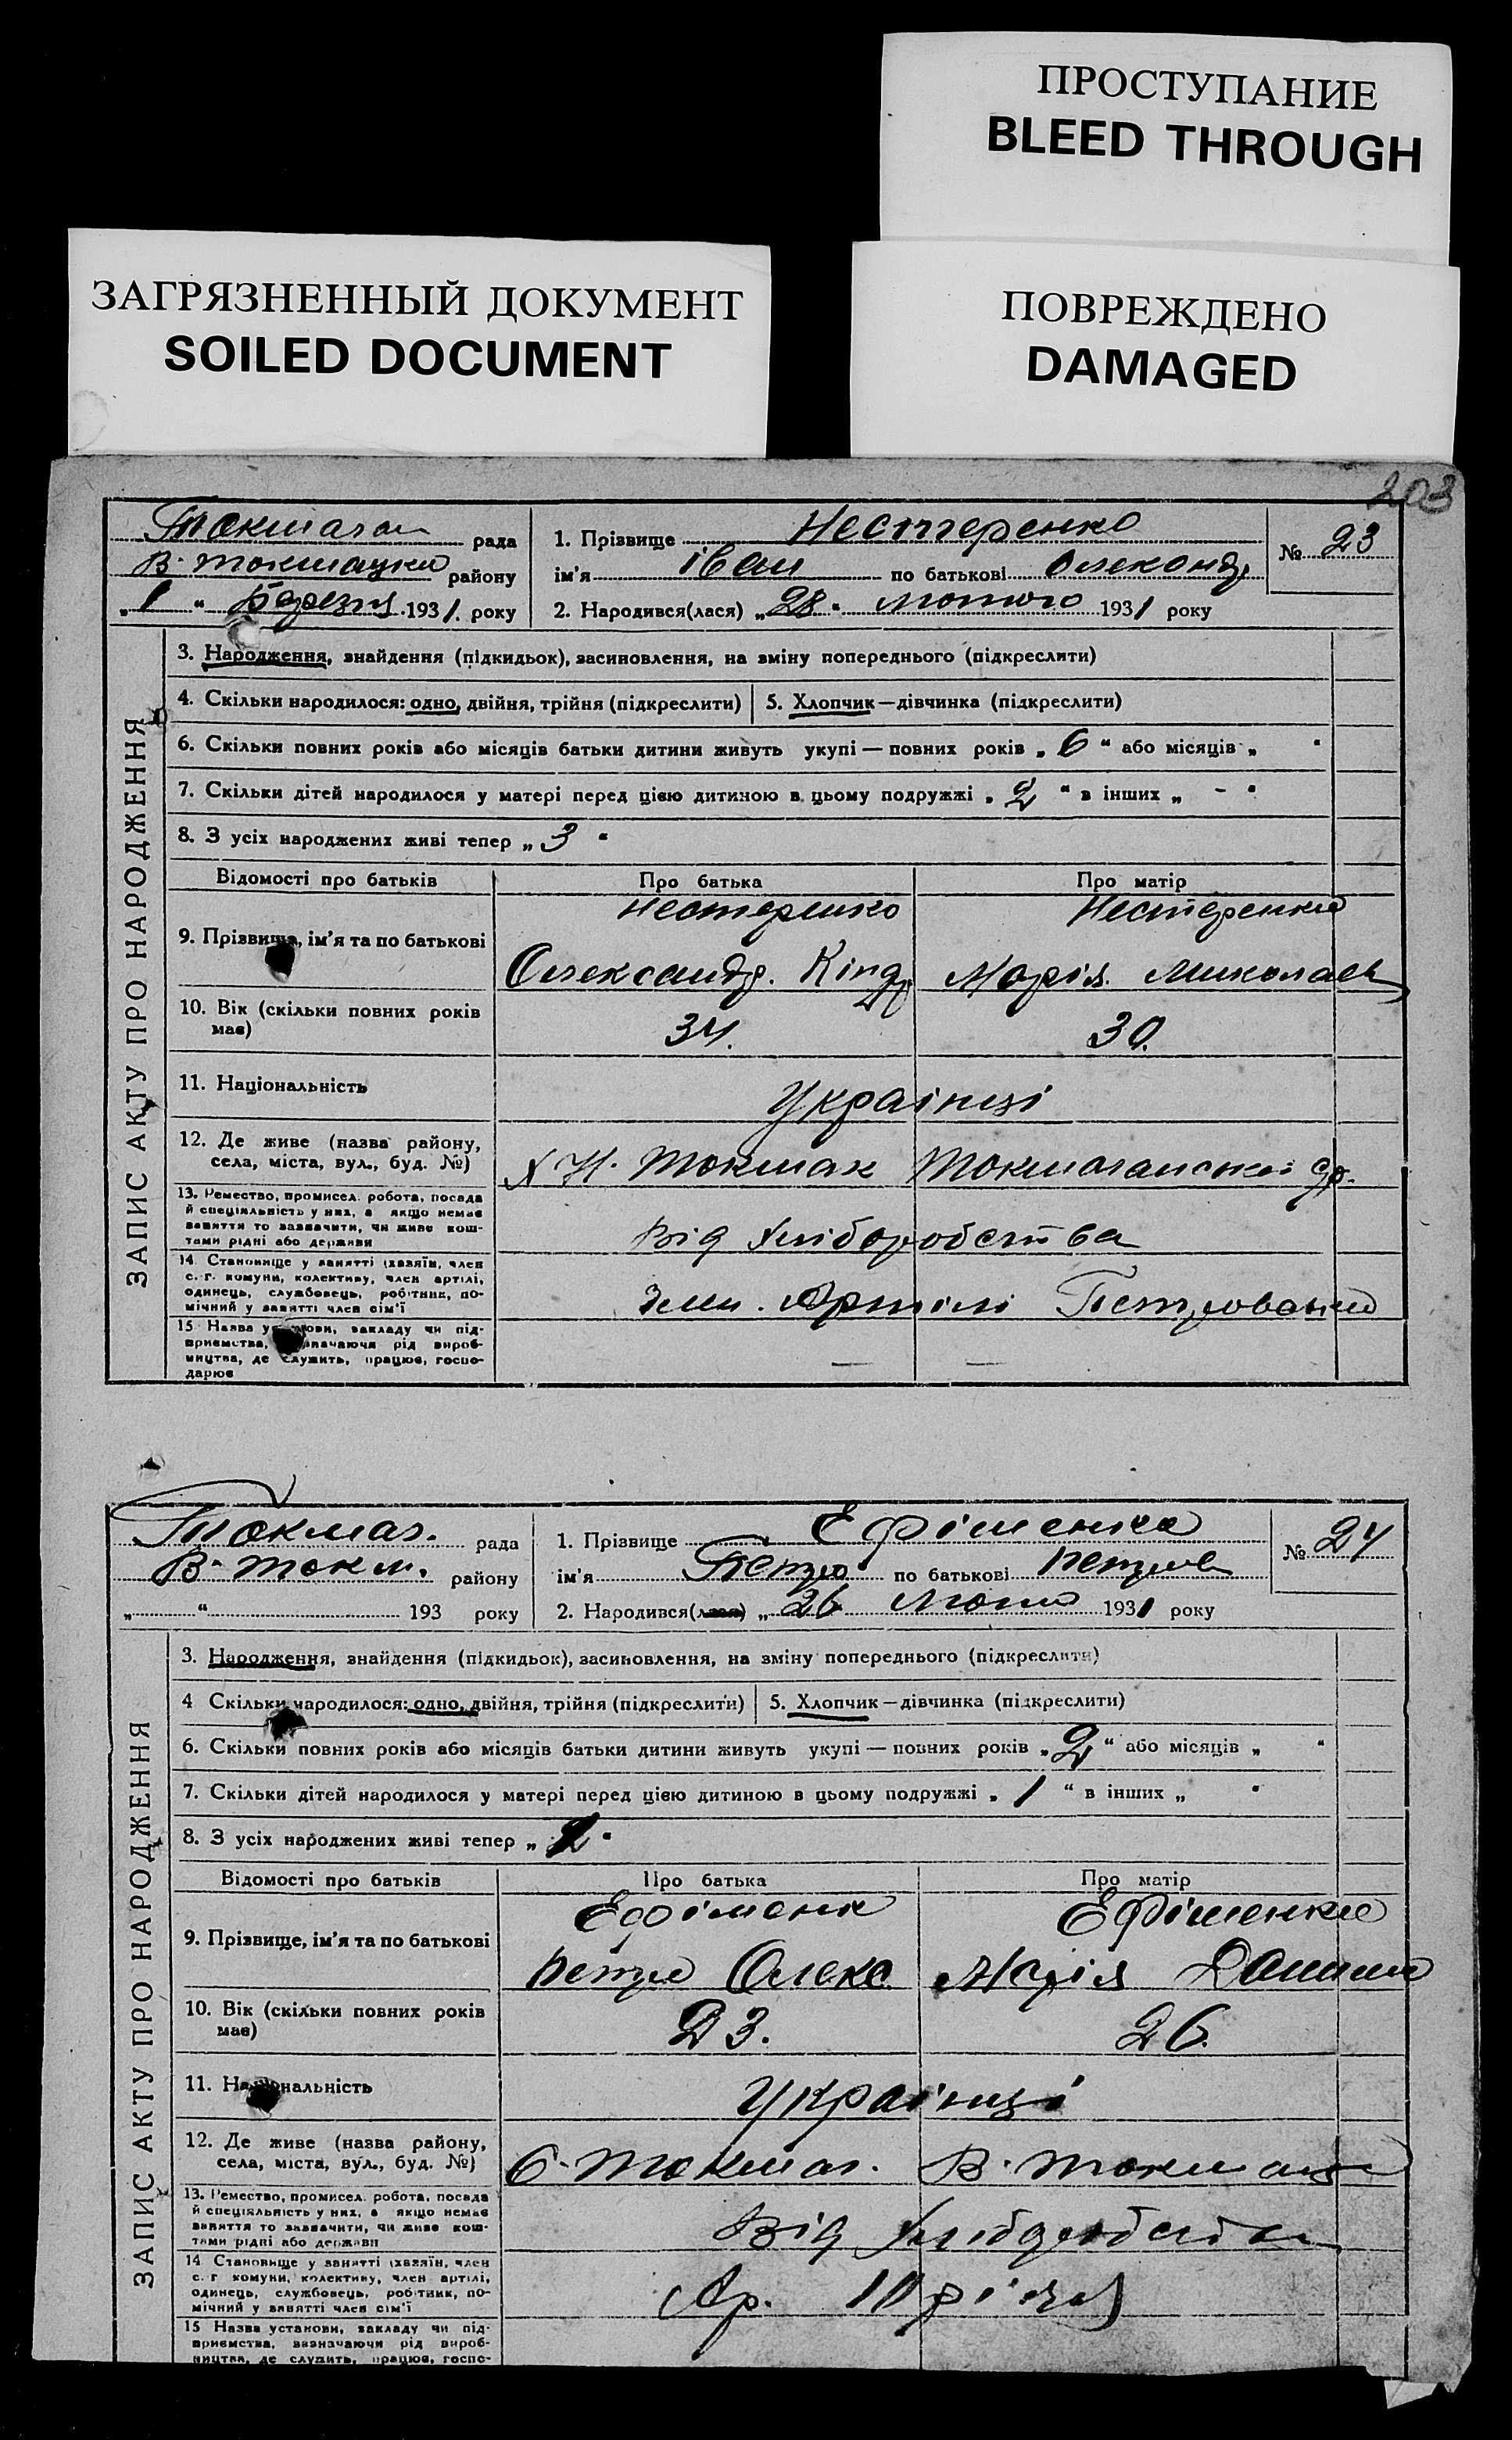 ПРОСТУПАНИЕ
BLEED THROUGH
ЗАГРЯЗНЕННЫЙ ДОКУМЕНТ
SOILED DOCUMENT
ПОВРЕЖДЕНО
DAMAGED
203
Токмачан рада
В. Токмацьки району
„1“ Березня 1931. року
1. Прізвище Нестеренко
ім'я Іван по батькові Олександр
2. Народився(лася) „28“ Лютого 1931 року
№ 23
ЗАПИС АКТУ ПРО НАРОДЖЕННЯ
3. Народження, знайдення (підкидьок), засиновлення, на зміну попереднього (підкреслити)
4. Скільки народилося: одно, двійня, трійня (підкреслити) 5. Хлопчик—дівчинка (підкреслити)
6. Скільки повних років або місяців батьки дитини живуть укупі — повних років „6“ або місяців „ “
7. Скільки дітей народилося у матері перед цією дитиною в цьому подружжі „2“ в інших „ - “
8. З усіх народжених живі тепер „3“
Відомості про батьків Про батька Про матір
9. Прізвище, ім'я та по батькові
Нестеренко Нестеренко
Олександр. Кіндр Марія Миколаєв
10. Вік (скільки повних років має) 34. 30.
11. Національність Українці
12. Де живе (назва району, села, міста, вул., буд. №) Х Н. Токмак Токмачанської ср.
13. Ремество, промисел, робота, посада й спеціяльність у них, а якщо немає заняття то зазначити, чи живе коштами рідні або держави
Від Хліборобства
14. Становище у занятті (хазяїн, член с.-г. комуни, колективу, член артілі, одинець, службовець, робітник, помічний у занятті член сім'ї
Артілі Петровський
15 Назва установи, закладу чи підприємства, зазначаючи рід виробництва, де служить, працює, господарює
— —
Токмач. рада
В. Токм. району
„ “ 193 року
1. Прізвище Ефіменко
ім'я Петро по батькові Петров
2. Народився(лася) „26 Лютого 1931 року
№ 24
ЗАПИС АКТУ ПРО НАРОДЖЕННЯ
3. Народження, знайдення (підкидьок), засиновлення, на зміну попереднього (підкреслити)
4 Скільки народилося: одно, двійня, трійня (підкреслити) 5. Хлопчик—дівчинка (підкреслити)
6. Скільки повних років або місяців батьки дитини живуть укупі — повних років „2“ або місяців „ “
7. Скільки дітей народилося у матері перед цією дитиною в цьому подружжі „1“ в інших „ “
8. З усіх народжених живі тепер „2“
Відомості про батьків Про батька Про матір
9. Прізвище, ім'я та по батькові
Ефіменк Ефіменко
Петро Олекс Марія
10. Вік (скільки повних років має) 23. 26.
11. Національність Українці
12. Де живе (назва району, села, міста, вул., буд. №) С. Токмач. В. Токмацьк
13. Ремество, промисел, робота, посада й спеціяльність у них, а якщо немає заняття то зазначити, чи живе коштами рідні або держави
Від Хліборобства
14 Становище у занятті (хазяїн, член с.-г комуни, колективу, член артілі, одинець, службовець, робітник, помічний у занятті член сім'ї
Ар.
15 Назва установи, закладу чи підприємства, зазначаючи рід виробництва, де служить, працює, госпо-